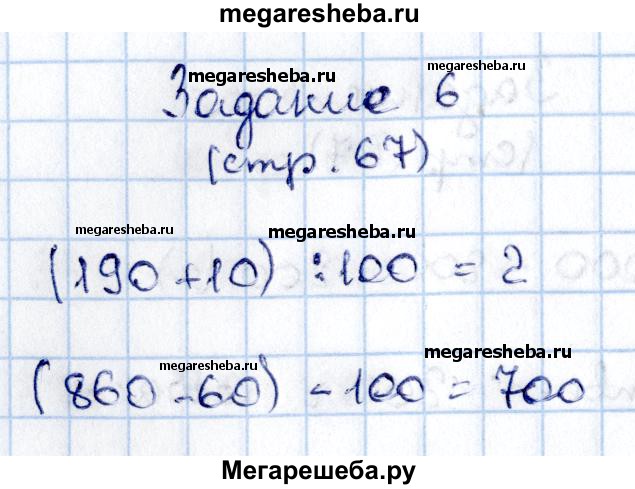 megaresheba.ru
megaresheba.ru
megaresheba.ru
Задание 6
(стр. 67)
megaresheba.ru
megaresheba.ru
(190 + 10) : 100 = 2
megaresheba.ru
megaresheba.ru
(860 - 60) - 100 = 700
Мегарешеба.ру